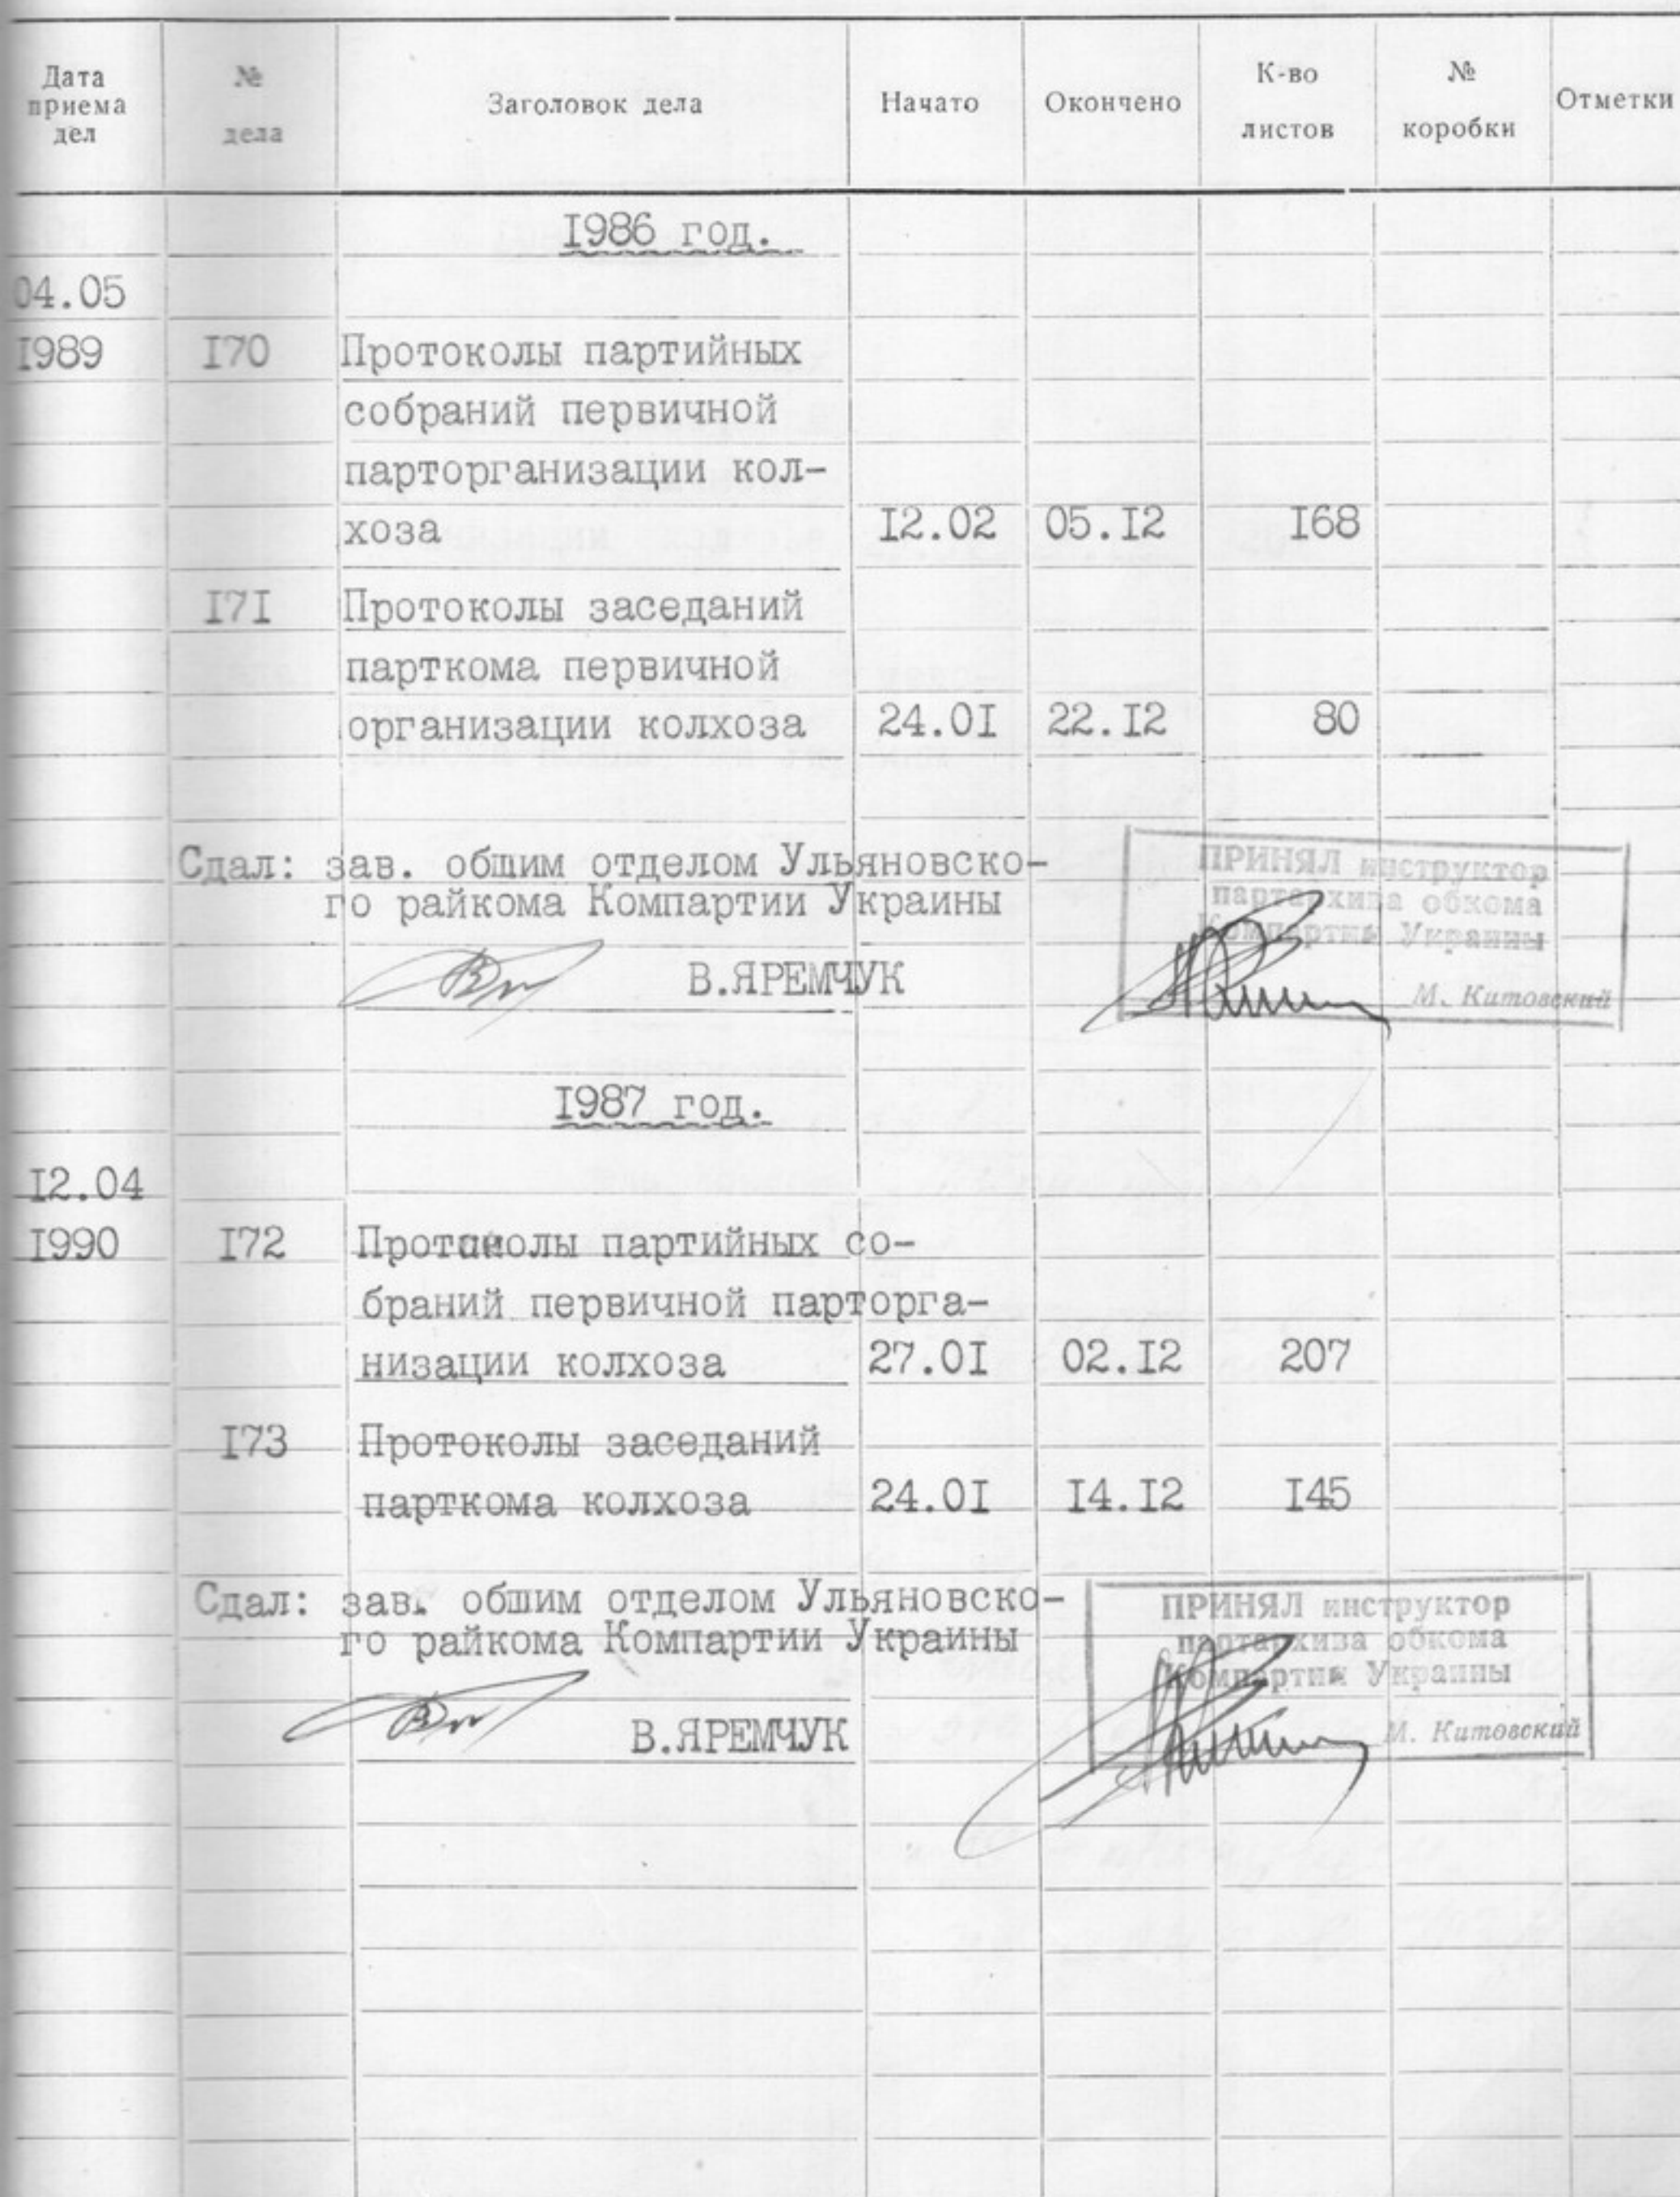 Дата приема дел № дела Заголовок дела Начато Окончено К-во листов № коробки Отметки
1986 год.
04.05
1989 170 Протоколы партийных
собраний первичной
парторганизации кол-
хоза 12.02 05.12 168
171 Протоколы заседаний
парткома первичной
организации колхоза 24.01 22.12 80
Сдал: зав. общим отделом Ульяновско-
го райкома Компартии Украины
В.ЯРЕМЧУК
ПРИНЯЛ инструктор
партархива обкома
Компартии Украины
М. Китовский
1987 год.
12.04
1990 172 Протоколы партийных со-
браний первичной парторга-
низации колхоза 27.01 02.12 207
173 Протоколы заседаний
парткома колхоза 24.01 14.12 145
Сдал: зав. общим отделом Ульяновско-
го райкома Компартии Украины
В.ЯРЕМЧУК
ПРИНЯЛ инструктор
партархива обкома
Компартии Украины
М. Китовский